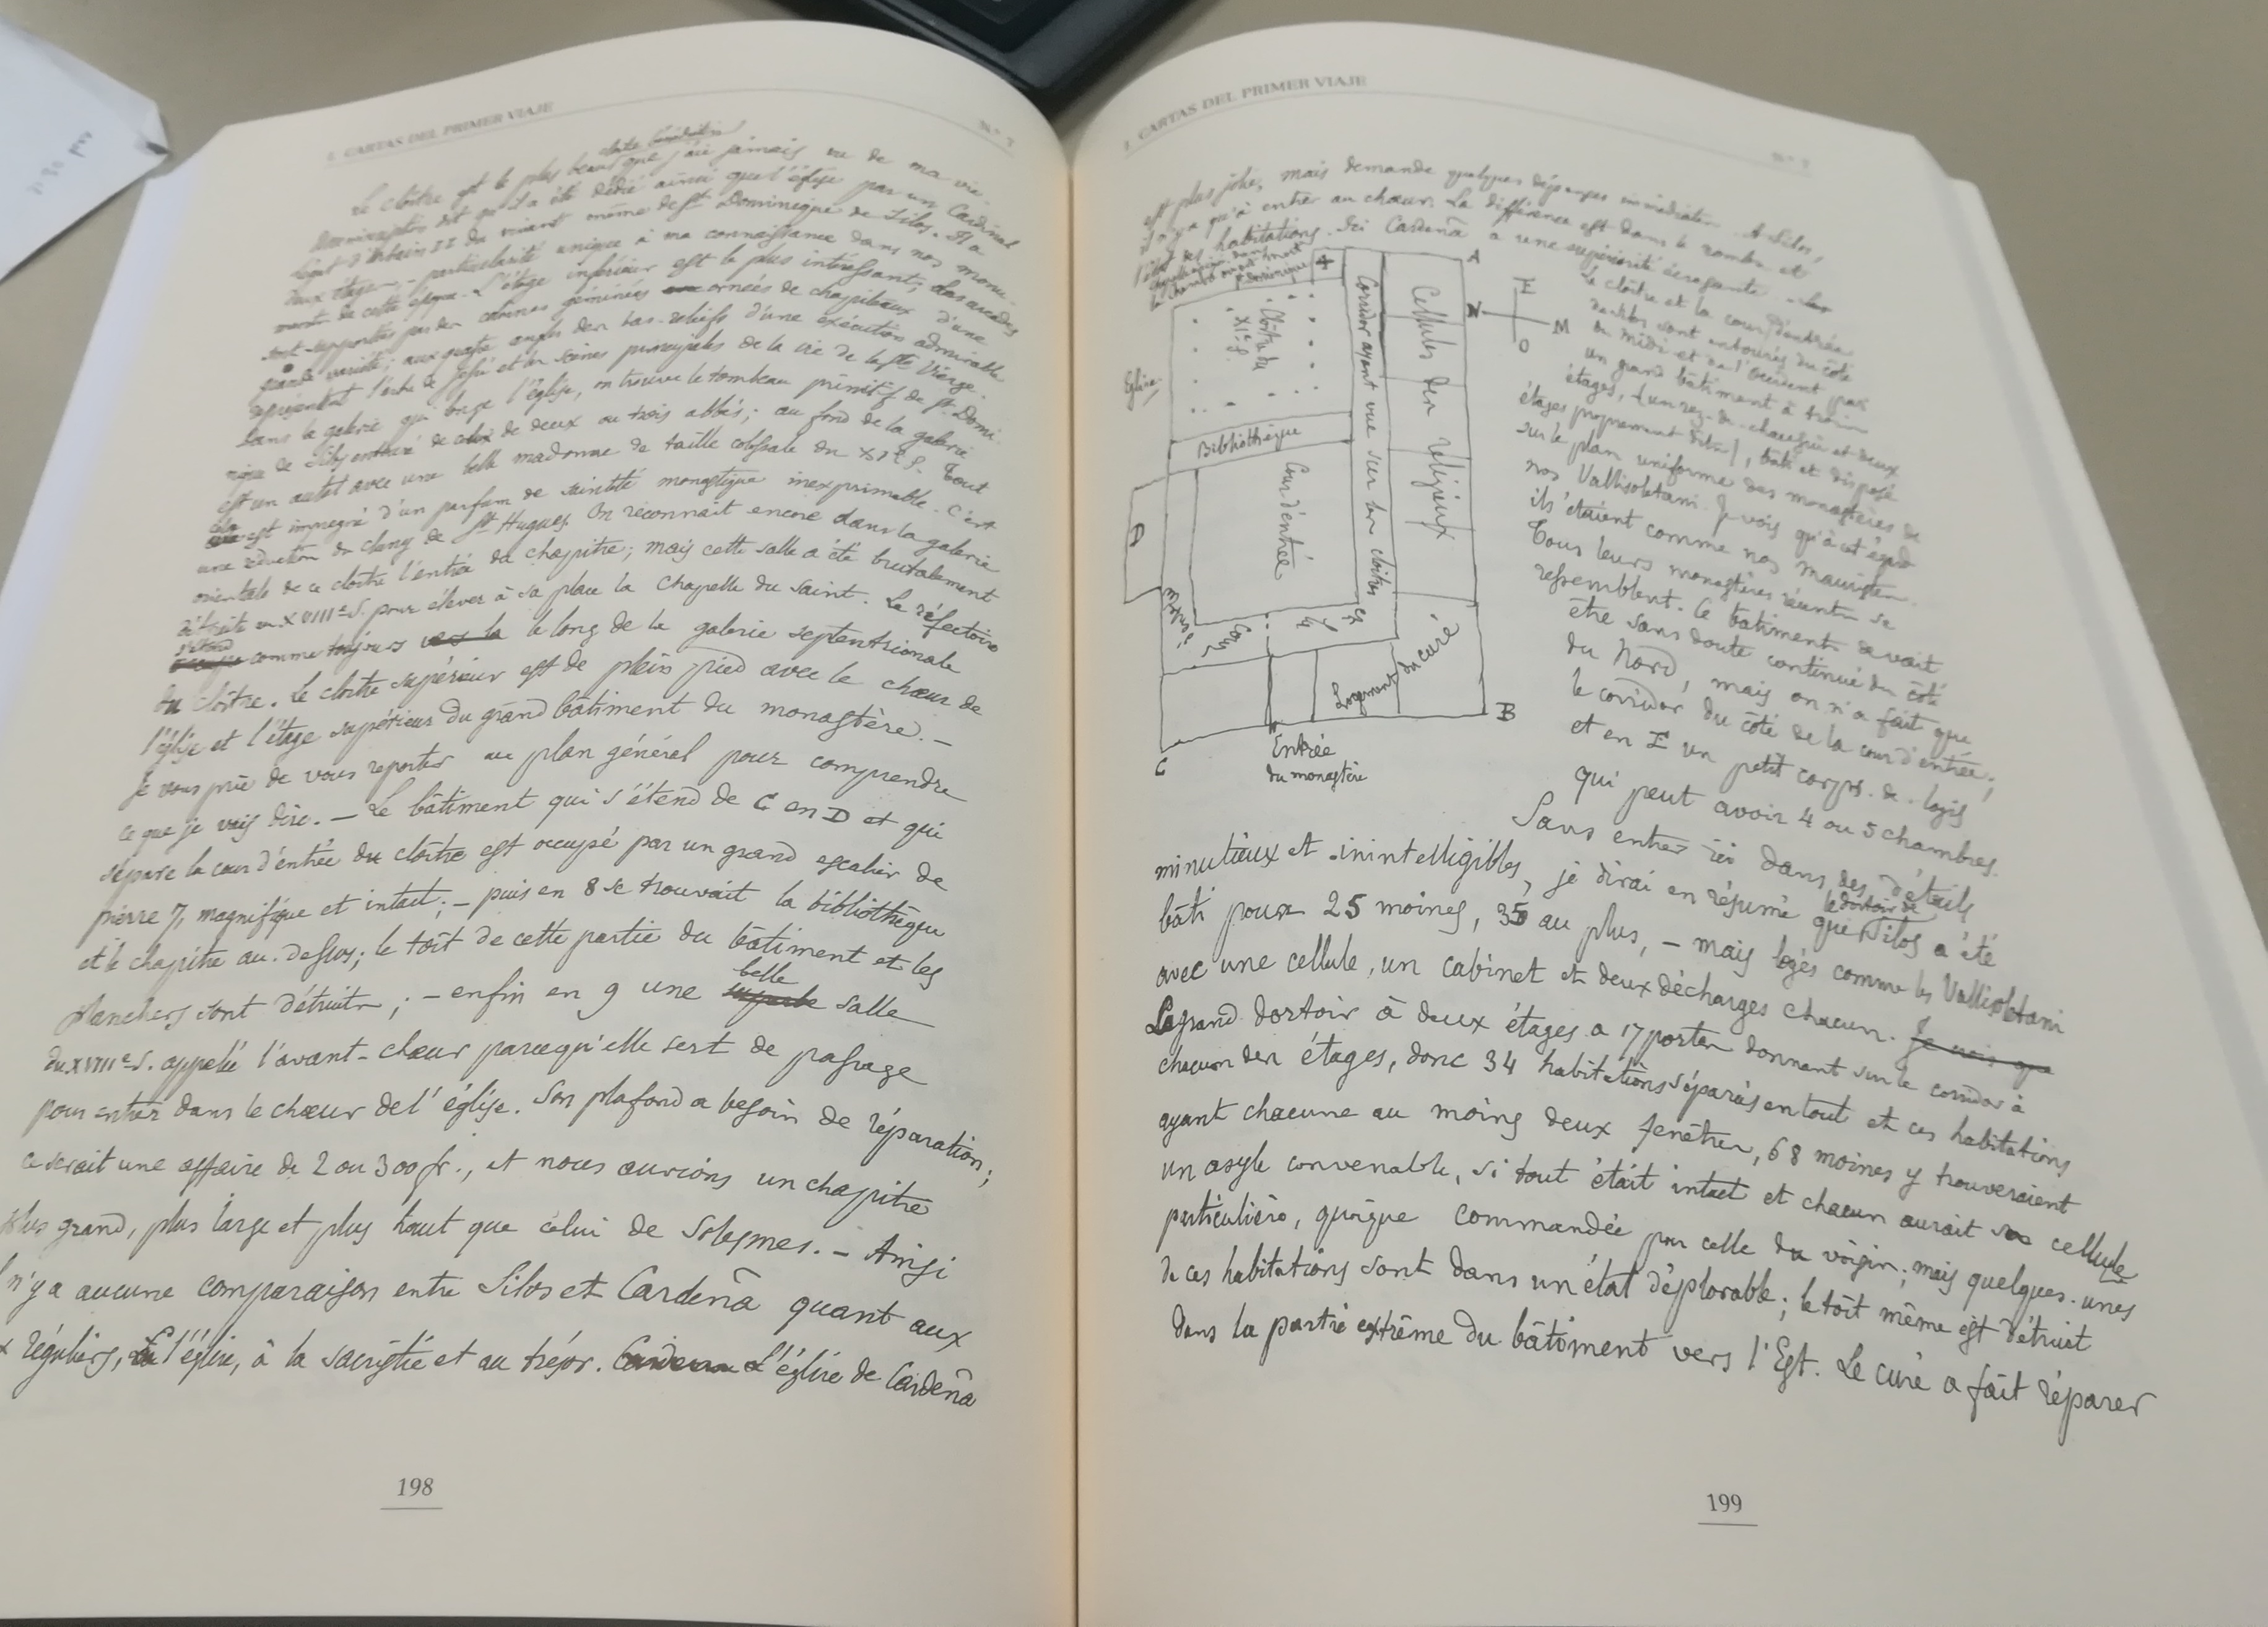 I CARTAS DEL PRIMER VIAJE
N.º 7
Le cloître est le plus beau cloître bénédictin que j'aie jamais vu de ma vie.
dit qu'il a été dédié ainsi que l'église par un Cardinal
Légat d'Urbain II du vivant même de St Dominique de Silos. Il a
deux étages, particularité unique à ma connaissance dans nos monu-
ments de cette époque. L'étage inférieur est le plus intéressant; les arcades
sont supportées par des colonnes géminées ornées de chapiteaux d'une
grande variété; aux quatre angles des bas-reliefs d'une exécution admirable
représentent l'arbre de Jessé et les scènes principales de la vie de la Ste Vierge.
Dans la galerie qui longe l'église, on trouve le tombeau primitif de St. Domi-
nique de Silos entouré de celui de deux ou trois abbés; au fond de la galerie
est un autel avec une belle madonne de taille colossale du XIe S. Tout
cela est imprégné d'un parfum de sainteté monastique inexprimable. C'est
une réduction du Cluny de St Hugues. On reconnait encore dans la galerie
orientale de ce cloître l'entrée du chapitre; mais cette salle a été brutalement
détruite au XVIIIe S. pour élever à sa place la Chapelle du Saint. Le réfectoire
s'étend comme toujours le long de la galerie septentrionale
du cloître. Le cloître supérieur est de plein pied avec le chœur de
l'église et l'étage supérieur du grand bâtiment du monastère. –
Je vous prie de vous reporter au plan général pour comprendre
ce que je vais dire. – Le bâtiment qui s'étend de C en D et qui
sépare la cour d'entrée du cloître est occupé par un grand escalier de
pierre 7, magnifique et intact; – puis en 8 se trouvait la bibliothèque
et le chapitre au-dessus; le toît de cette partie du bâtiment et les
planchers sont détruits; – enfin en 9 une belle salle
du XVIIIe S. appelée l'avant-chœur parcequ'elle sert de passage
pour entrer dans le chœur de l'église. Son plafond a besoin de réparation;
ce serait une affaire de 2 ou 300 fr., et nous aurions un chapitre
plus grand, plus large et plus haut que celui de Solesmes. – Ainsi
il n'y a aucune comparaison entre Silos et Cardeña quant aux
x réguliers, à l'église, à la sacristie et au trésor. L'église de Cardeña
198
I CARTAS DEL PRIMER VIAJE
N.º 7
est plus jolie, mais demande quelques dépenses immédiates. A Silos,
il n'y a qu'à entrer au chœur. La différence est dans le nombre et
l'état des habitations. Ici Cardeña a une supériorité écrasante.
4
A
Eglise
Cloître du
XIe S.
Corridor ayant vue sur les cloîtres
Cellules des religieux
E
N
M
O
Bibliothèque
Cour d'entrée
D
Logement du curé
B
C
Entrée
du monastère
Le cloître et la cour d'entrée
de Silos sont entourés du côté
du midi et de l'occident par
un grand bâtiment à trois
étages, (un rez-de-chaussée et deux
étages proprement dits), bâti et disposé
sur le plan uniforme des monastères de
nos Vallisoletani. Je vois qu'à cet égard
ils étaient comme nos mauristes.
Tous leurs monastères récents se
ressemblent. Ce bâtiment devait
être sans doute continué du côté
du Nord, mais on n'a fait que
le corridor du côté de la cour d'entrée;
et en E un petit corps-de-logis
qui peut avoir 4 ou 5 chambres.
Sans entrer ici dans des détails
minutieux et inintelligibles, je dirai en résumé que le dortoir de Silos a été
bâti pour 25 moines, 35 au plus, – mais logés comme les Vallisoletani
avec une cellule, un cabinet et deux décharges chacun. Je vois que
Le grand dortoir à deux étages a 17 portes donnant sur le corridor à
chacun des étages, donc 34 habitations séparées en tout et ces habitations
ayant chacune au moins deux fenêtres, 68 moines y trouveraient
un asyle convenable, si tout était intact et chacun aurait sa cellule
particulière, quoique commandée par celle du voisin; mais quelques-unes
de ces habitations sont dans un état déplorable; le toît même est détruit
dans la partie extrême du bâtiment vers l'Est. Le curé a fait réparer
199